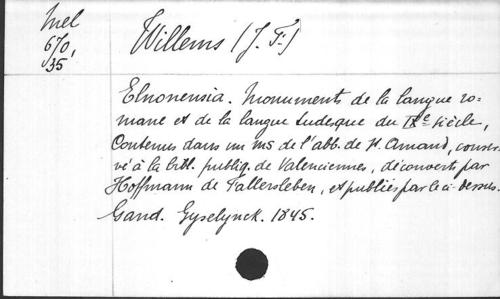 Mel
670,
35
Willems (J. F.)
Elnonensia. Monuments de la langue ro-
mane et de la langue tudesque du IXe siècle,
Contenus dans un ms de l'abb. de St. Amand, conser-
vé à la bibl. publiq. de Valenciennes, découverts par
Hoffmann de Fallersleben, et publiés par le ci-dessus.
Gand. Gyselynck. 1845.